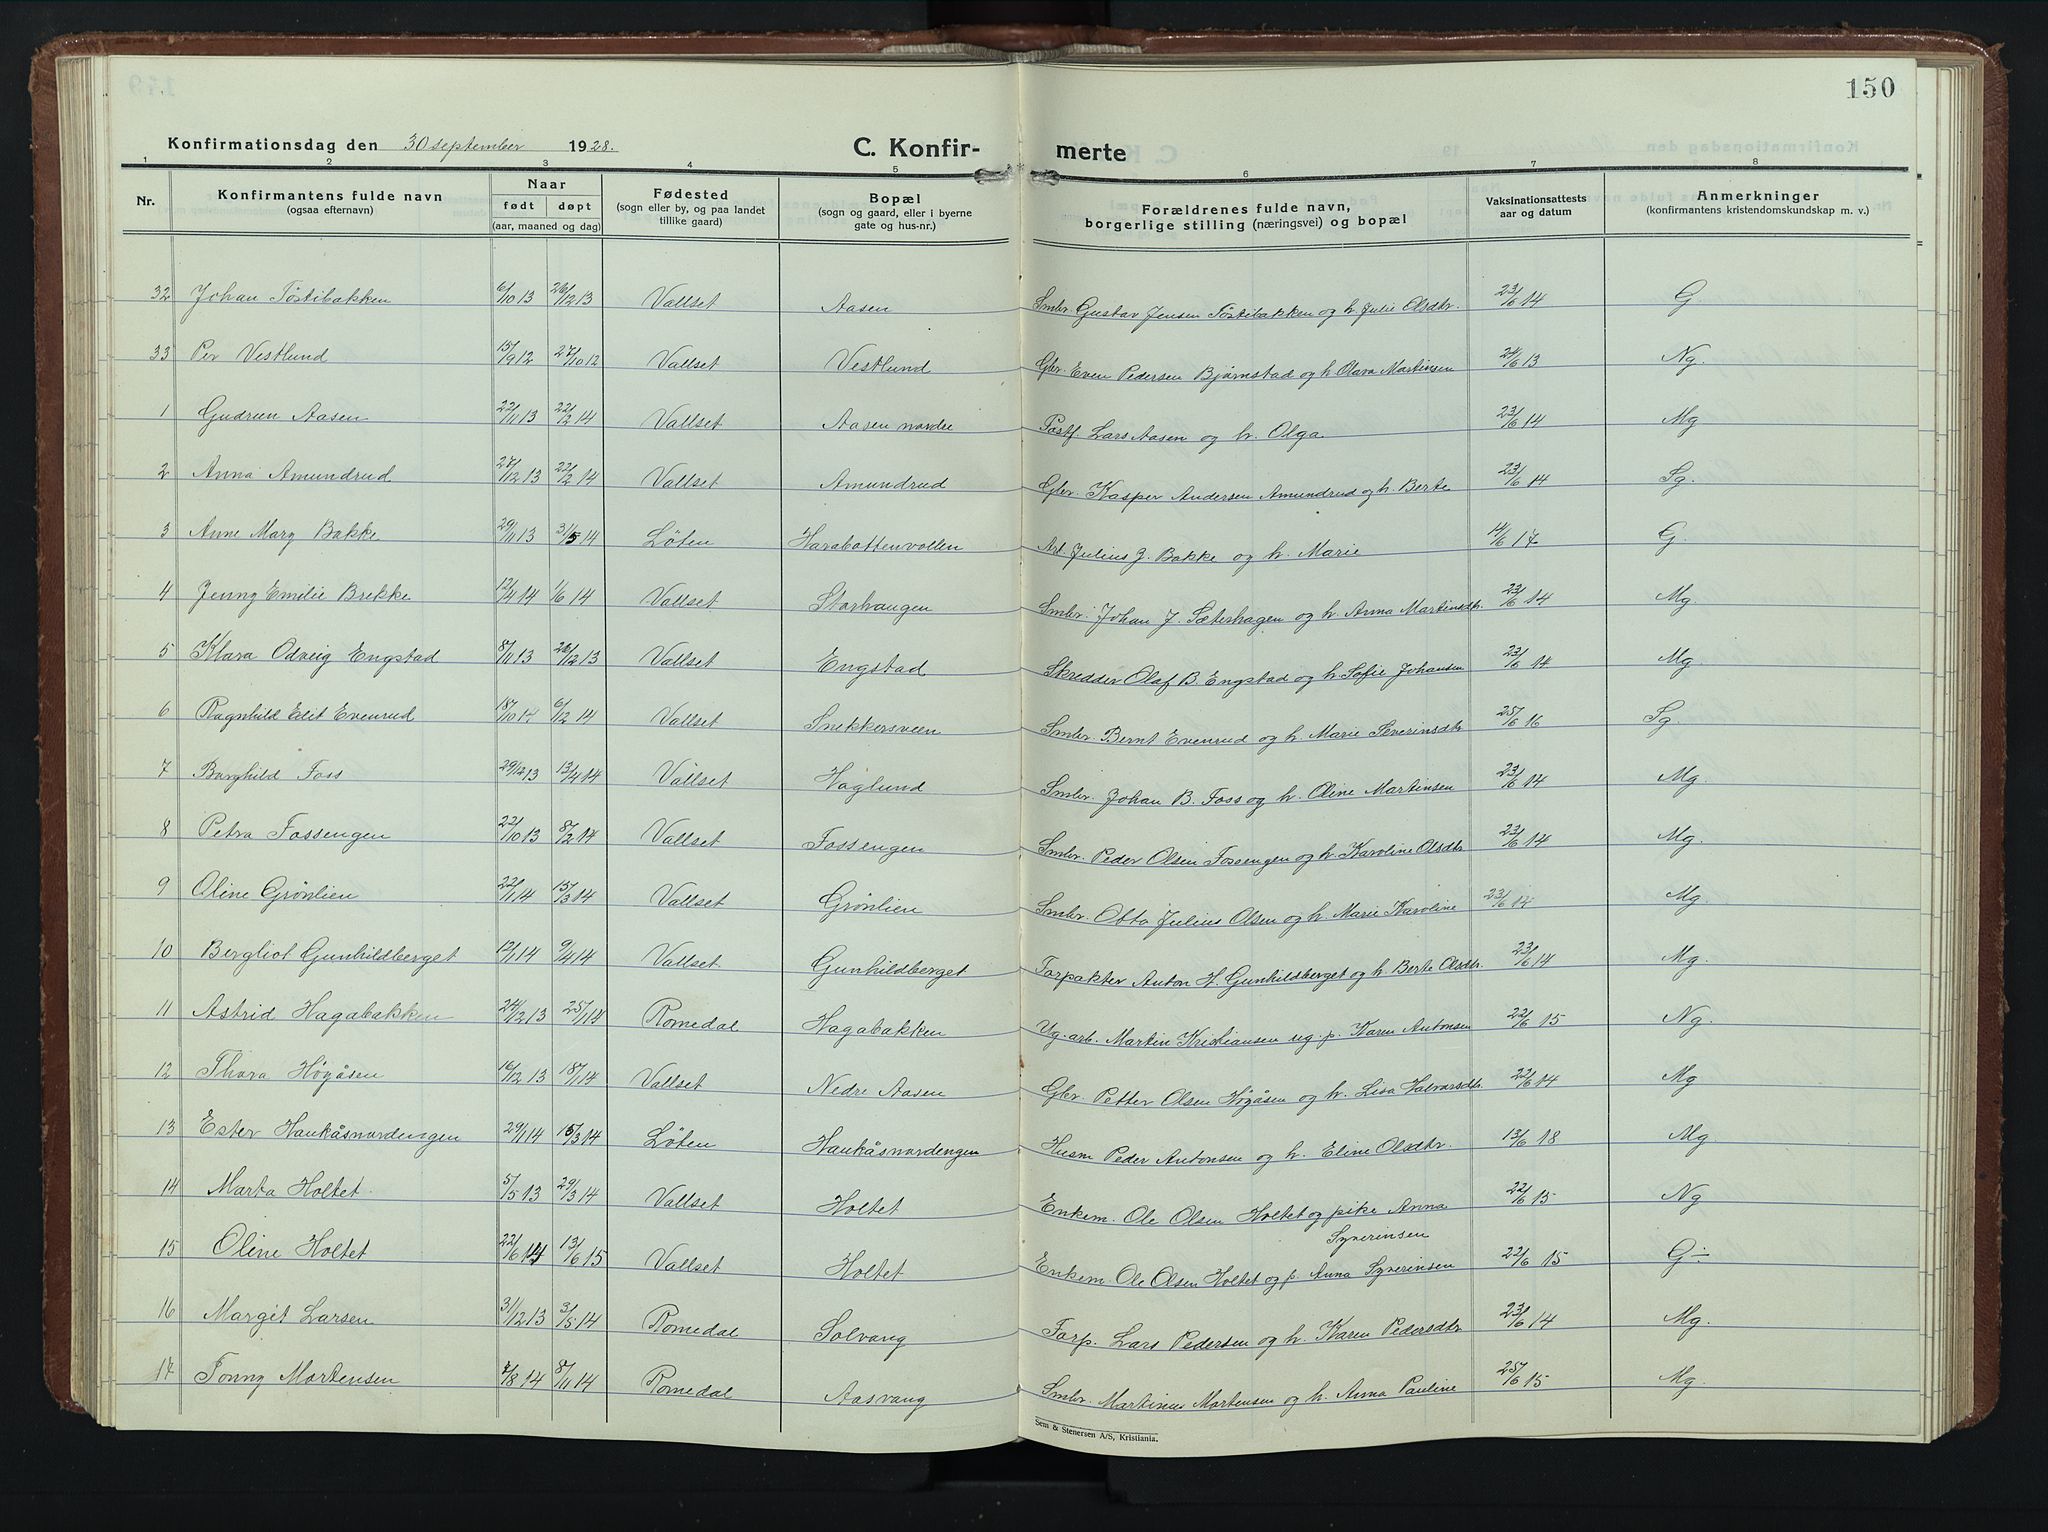 150
Konfirmationsdag den 30 september 1928. C. Konfir- merte
1 2 3 4 5 6 7 8
Nr. Konfirmantens fulde navn (ogsaa efternavn) Naar født døpt (aar, maaned og dag) Fødested (sogn eller by, og paa landet tillike gaard) Bopæl (sogn og gaard, eller i byerne gate og hus-nr.) Forældrenes fulde navn, borgerlige stilling (næringsvei) og bopæl Vaksinationsattests aar og datum Anmerkninger (konfirmantens kristendomskundskap m. v.)
32 Johan Tøstibakken 6/10 13 26/12 13 Vallset Aasen Smbr. Gustav Jensen Tøstibakken og h. Julie Olsdtr. 23/6 14 G.
33 Per Vestlund 15/9 12 27/10 12 Vallset Vestlund Gbr. Even Pedersen Bjørnstad og h. Olava Martinsen 24/6 13 Ng.
1 Gudrun Aasen 22/11 13 22/2 14 Vallset Aasen nordre Postf. Lars Aasen og h. Olga 23/6 14 Mg
2 Anna Amundrud 27/12 13 22/2 14 Vallset Amundrud Gbr. Kasper Andersen Amundrud og h. Berte 23/6 14 Sg.
3 Anne Mary Bakke 29/11 13 31/5 14 Løten Harabottenvollen Arb. Julius J. Bakke og h. Marie 14/6 17 G.
4 Jenny Emilie Brekke 12/4 14 1/6 14 Vallset Storhaugen Smbr. Johan J. Sæterhagen og h. Anna Martinsdtr. 23/6 14 Mg.
5 Klara Odveig Engstad 8/11 13 26/12 13 Vallset Engstad Skredder Olaf B. Engstad og h. Sofie Johansen 23/6 14 Mg.
6 Ragnhild Edit Evenrud 18/10 14 6/12 14 Vallset Snekkersveen Smbr. Bernt Evenrud og h. Marie Severinsdtr 25/6 16 Sg.
7 Borghild Foss 29/12 13 13/4 14 Vallset Haglund Smbr. Johan B. Foss og h. Oline Martinsen 23/6 14 Mg.
8 Petra Fossengen 22/10 13 8/2 14 Vallset Fossengen Smbr. Peder Olsen Fossengen og h. Karoline Olsdtr 23/6 14 Mg.
9 Oline Grønlien 22/1 14 15/3 14 Vallset Grønlien Smbr. Otto Julius Olsen og h. Marie Karoline 23/6 14 Mg.
10 Bergliot Gunhildberget 12/1 14 9/4 14 Vallset Gunhildberget Forpakter Anton H. Gunhildberget og h. Berte Olsdtr. 23/6 14 Mg.
11 Astrid Hagabakken 24/12 13 25/1 14 Romedal Hagabakken Ug. arb. Martin Kristiansen ug. p. Karen Antonsen 22/6 15 Ng.
12 Thora Høgåsen 16/12 13 18/1 14 Vallset Nedre Aasen Gbr. Petter Olsen Høgåsen og h. Lisa Halvorsdtr 22/6 14 Mg
13 Ester Haukåsnordengen 29/1 14 15/3 14 Løten Haukåsnordengen Husm Peder Antonsen og h. Eline Olsdtr. 13/6 18 Mg
14 Marta Holtet 5/5 13 29/3 14 Vallset Holtet Enkem. Ole Olsen Holtet og pike Anna Syverinsen 22/6 15 Ng
15 Oline Holtet 22/6 14 13/6 15 Vallset Holtet Enkem. Ole Olsen Holtet og p. Anna Syverinsen 22/6 15 G÷
16 Margit Larsen 31/12 13 3/5 14 Romedal Solvang Forp. Lars Pedersen og h. Karen Pedersdtr 23/6 14 Mg.
17 Tonny Mortensen 7/8 14 8/11 14 Romedal Aasvang Smbr. Martinus Mortensen og h. Anna Pauline 25/6 15 Mg.
Sem & Stenersen A/S, Kristiania.